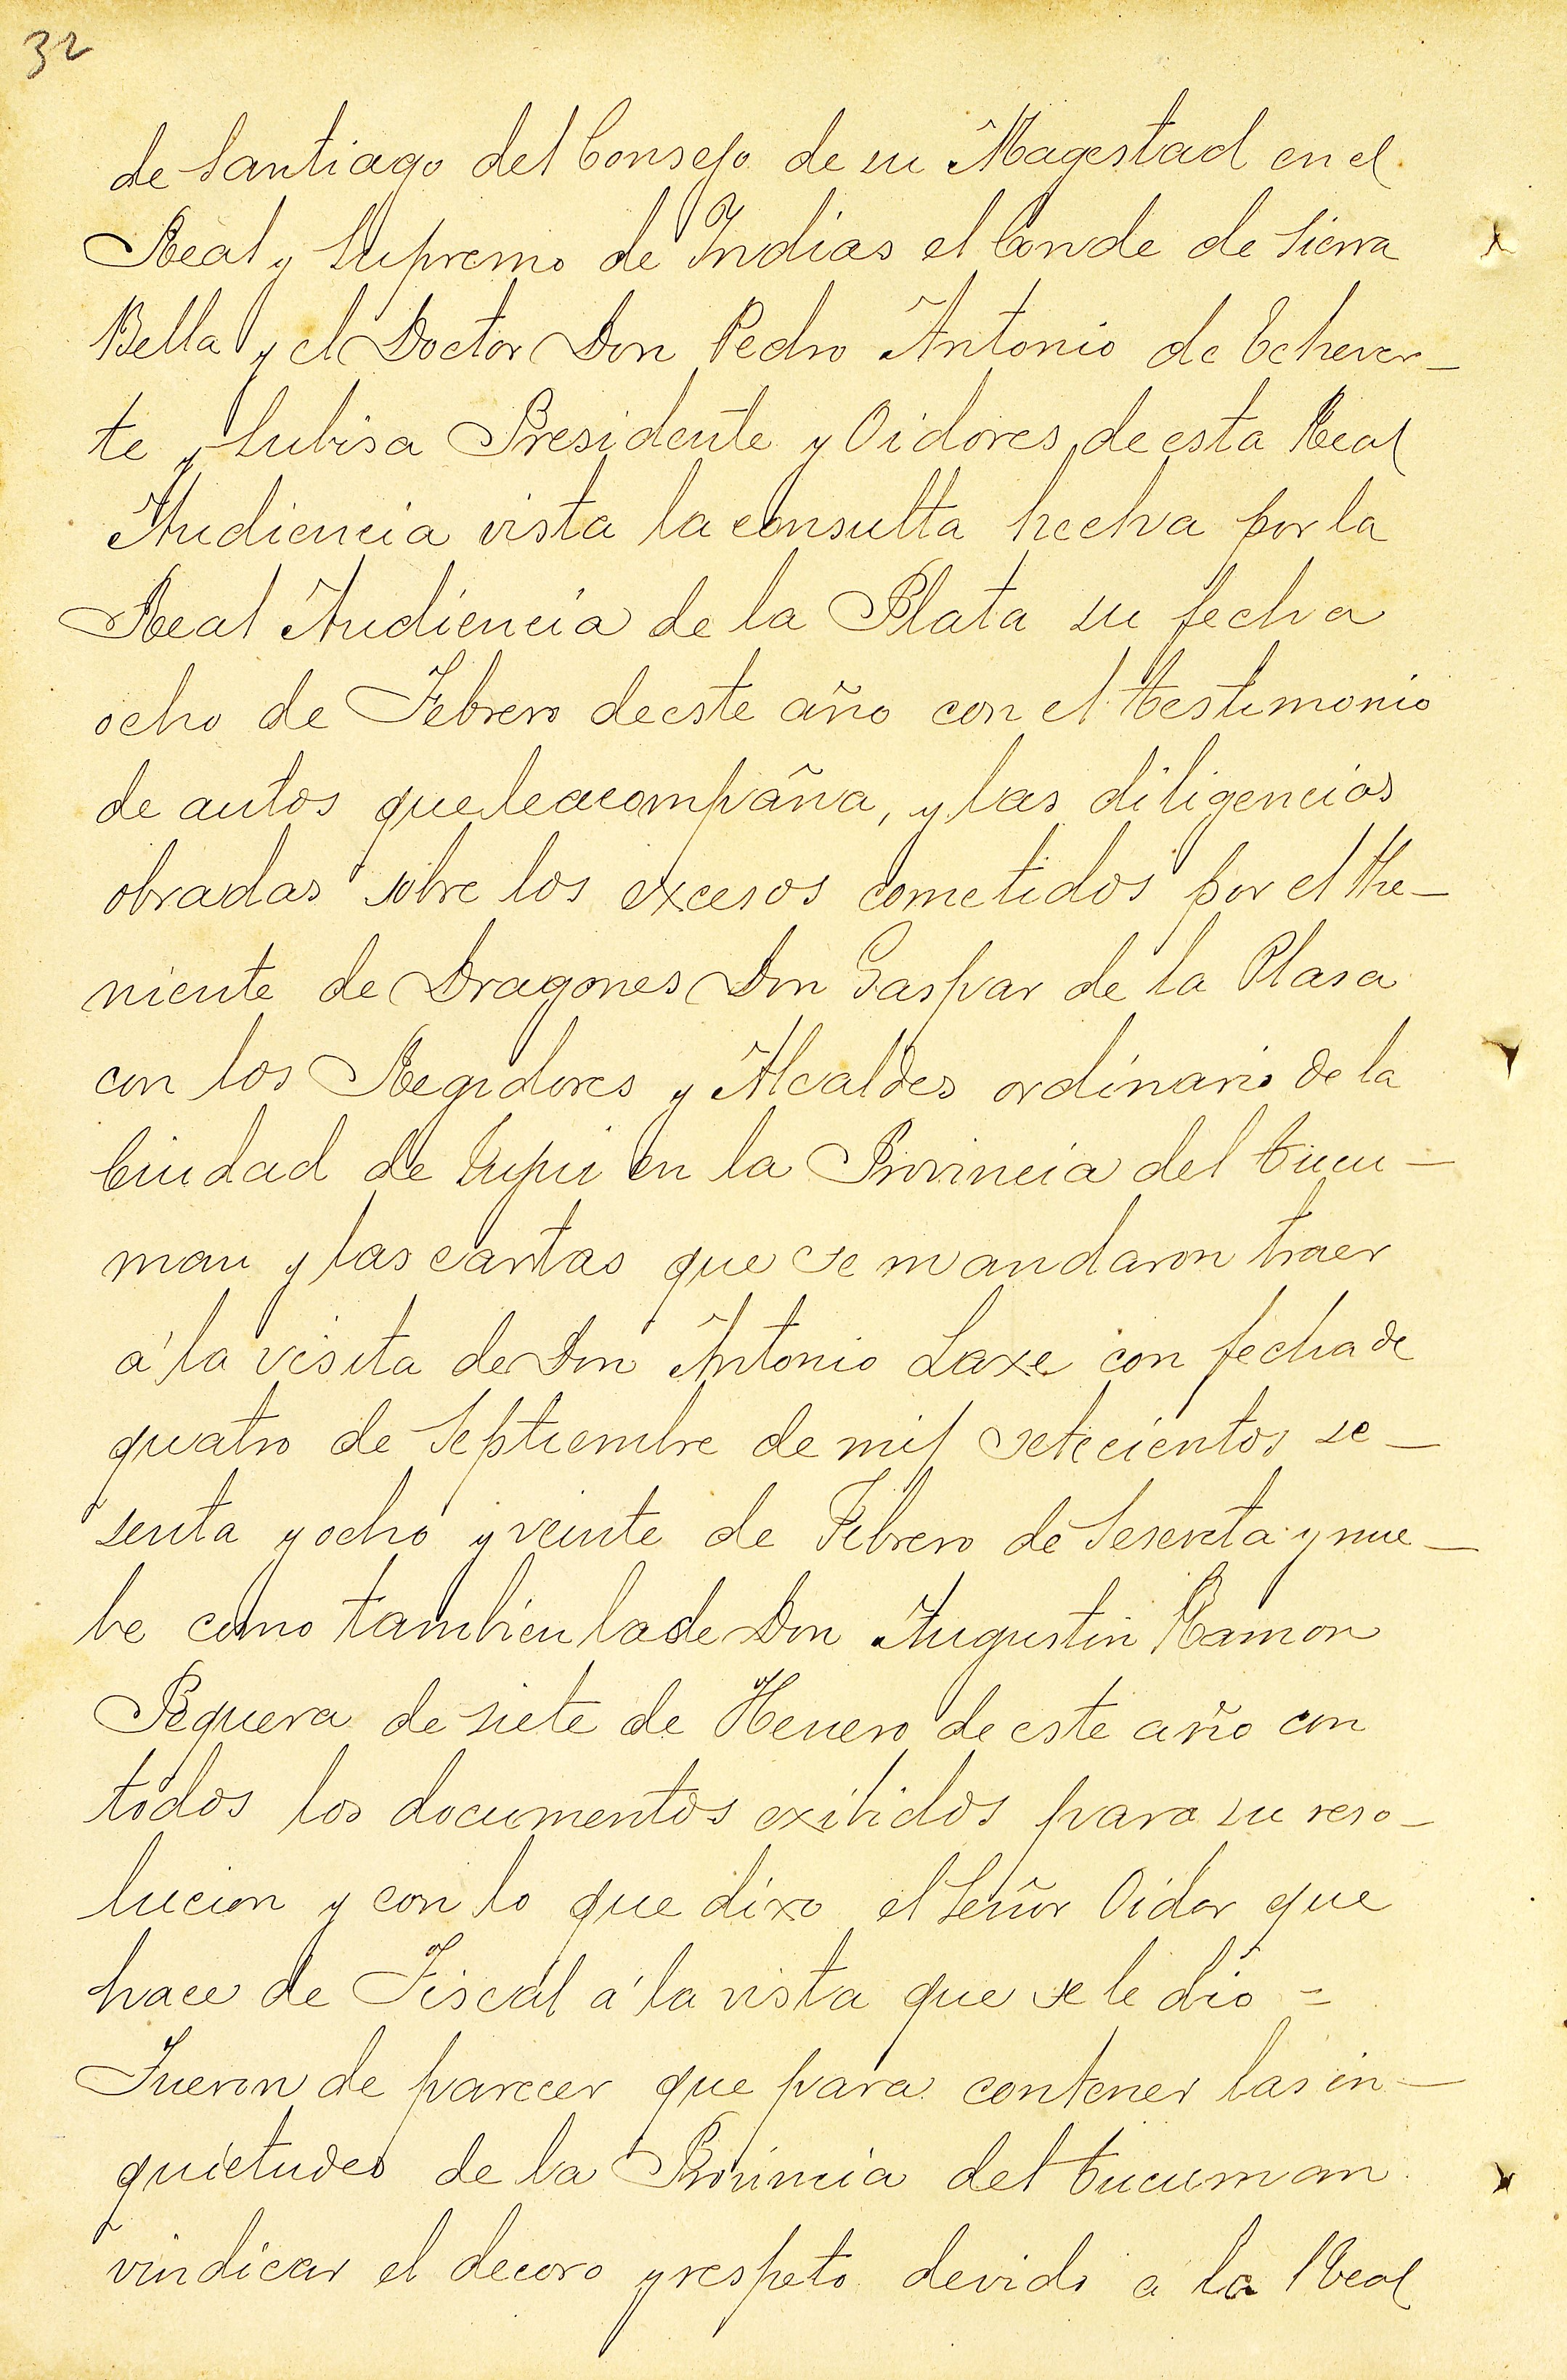 32
de Santiago del Consejo de su Magestad en el
Real y Supremo de Indias el Conde de Sierra
Bella y el Doctor Don Pedro Antonio de Echever-
te y Subisa Presidente y Oidores de esta Real
Audiencia vista la consulta hecha por la
Real Audiencia de la Plata su fecha
ocho de Febrero deeste año con el testimonio
de autos queleacompaña, y las diligencias
obradas sobre los excesos cometidos por el The-
niente de Dragones Don Gaspar de la Plasa
con los Regidores y Alcaldes ordinario de la
Ciudad de Jujui en la Provincia del tucu-
man y las cartas que se mandaron traer
á la visita de Don Antonio Laxe con fecha de
quatro de Septiembre de mil setecientos se-
senta y ocho y veinte de Febrero de Sesenta y nue-
be como tambien lade Don Augustin Ramon
Pequera de siete de Henero de este año con
todos los documentos exibidos para su reso-
lucion y con lo que dixo el Señor Oidor que
hace de Fiscal á la vista que se le dió =
Fueron de parecer que para contener las in-
quietudes de la Provincia del tucuman
vindicar el decoro y respeto devido a la Real